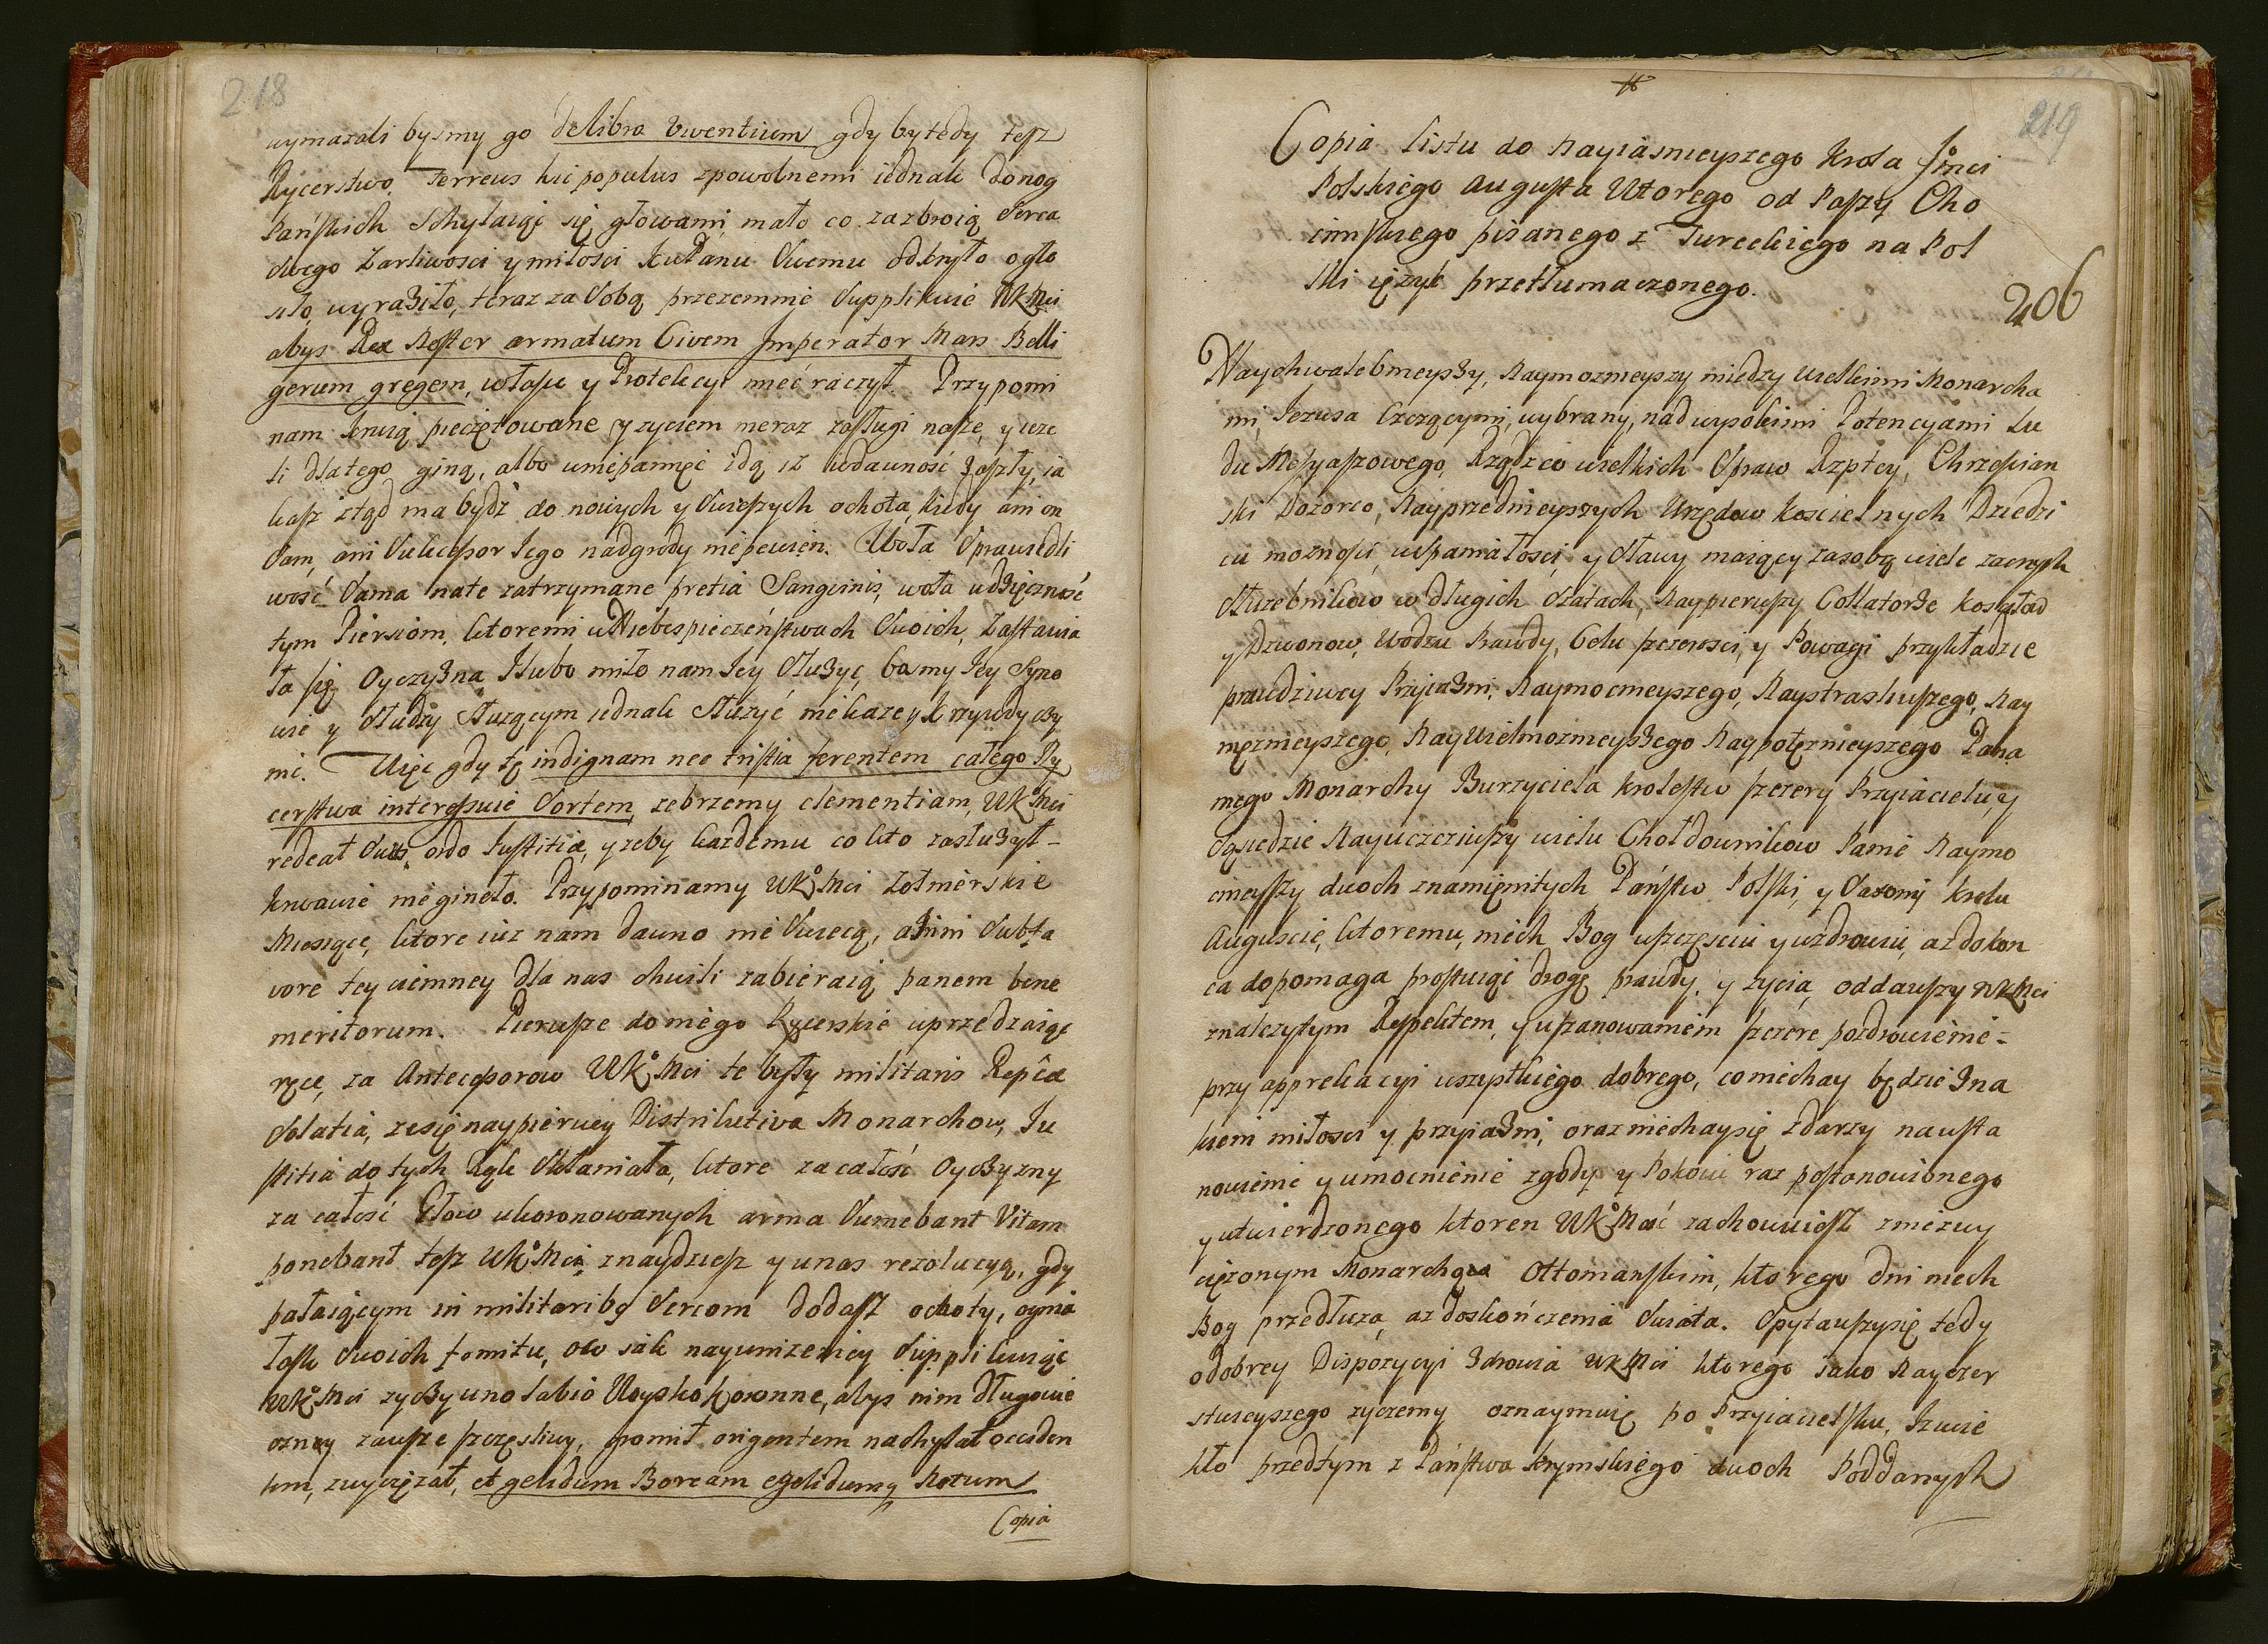 218
wymazali bysmy go de libro viventium gdy by tedy tesz
Rycerstwo. Ferreus hic populus zpowolnemi iednak do nog
Pańskich schylaiąc się głowami, mało co za zbroią serca
swego żarliwosci y miłosci ku Panu swemu odkryło ogło
siło, wyraziło, teraz za sobą przezemnie supplikuie WKMci
abys Rex noster armatum Civem Imperator Mars Belli
gerum gregem, w łasce y Protekcyi mieć raczył. Przypomi
nam krwią pieczętowane y zyciem nieraz zasługi nasze, y ieze
li dlatego giną, albo w niepamięć idą iż w dawność zaszły, ia
kasz ztąd ma bydź do nowych y swieszych ochota, kiedy ani on
sam, ani sukcessor Iego nadgrody nie pewien. Woła sprawiedli
wość sama na te zatrzymane pretia Sanguinis, woła wdzięczność
tym Piersiom, ktoremi w Niebespieczeństwach swoich, zastawia
ła się Oyczyzna. Lubo miło nam Iey służyc, bo my Iey Syno
wie y słudzy sluzącym iednak służyć nie każe y krzywdy czy
ni. Więc gdy tę indignam nec tristia ferentem całego Ry
cerstwa interessuie sortem, zebrzemy clementiam, WKMci
redeat suus, ordo Iustitiæ, y zeby kazdemu co kto zasłużył –
krwawie nie gineło. Przypominamy WKMci Zołnierskie
Miesiące, ktore iuz nam dawno nie swiecą, a inni sub fa
vore tey ciemney dla nas chwili zabieraią panem bene
meritorum. Pierwsze do niego Rycerskie uprzedzaiąc
ręce, za Antecessorow WKMci te były militaris Reipcæ
solatia, ze się naypierwey Distributiva Monarchow, Iu
stitia do tych Rąk skłaniała, ktore za całość Oyczyzny
za całość Głow ukoronowanych arma sumebant Vitam
ponebant tesz WKMci znaydziesz y u nas rezolucyą, gdy
pałaiącym in militaribq sercom dodasz ochoty, ognia
łask swoich fomitu, oco iak nayunizeniey supplikuiąc
WKMci zyczy uno labio Woysko Koronne, abys nim długowie
czny zawsze szczęsliwy, gromił origentem nachylał occiden
tem, zwyciężał, et gelidum Boream egelidumq Notum
Copia
219
Copia listu do Nayiasnieyszego Krola Jmci
Polskiego Augusta Wtorego od Paszy Cho
cimskiego pisanego z Tureckiego na Pol
ski ięzyk przetłumaczonego.
206
Naychwalebnieyszy, Naymoznieyszy między wielkimi Monarcha
mi, Jezusa Czczącymi, wybrany, nad wysokimi Potencyami Lu
du Messyaszowego, Rządzco wielkich Spraw Rzptey, Chrzescian
ski Dozorco, Nayprzednieyszych Urzędow koscielnych Dziedzi
cu moznosci, wspaniałosci, y sławy maiący za sobą wiele zacnych
służebnikow w długich szatach, Naypierwszy Collatorze kosciołow
y Dzwonow, Wodzu Prawdy, Celu szczerosci, y Powagi przykładzie
prawdziwey Przyiazni, Naymocnieyszego, Naystraszliwszego, Nay
mężnieyszego, Naywielmoznieyszego Naypotęznieyszego Pana
mego Monarchy Burzyciela krolestw szczery Przyiacielu, y
Sąsiedzie Nayuczciwszy wielu Chołdownikow Panie Naymo
cnieyszy dwoch znamięnitych Państw Polski, y Saxonij krolu
Auguscie, ktoremu, niech Bog w szczęsciu y w zdrowiu, az do kon
ca dopomaga prostuiąc drogę prawdy, y zycia, oddawszy WKMci
z nalezytym Respektem, y uszanowaniem szczere pozdrowienie –
przy apprekacyi wszystkiego dobrego, co niechay będzie zna
kiem miłosci y przyiazni, oraz niechay się zdarzy na usta
nowienie y umocnienie zgody y Pokoiu raz postanowionego
y utwierdzonego ktoren WKMść zachowuiesz z niezwy
ciężonym Monarchą Ottomanskim, ktorego dni niech
Bog przedłuza, az do skończenia swiata. Spytawszy się tedy
o dobrey Dispozycyi zdrowia WKMci ktorego iako Nayczer
stwieyszego zyczemy oznaymuię po Przyiacielsku, Iz wie
kto przed tym z Państwa krymskiego dwoch Poddanych